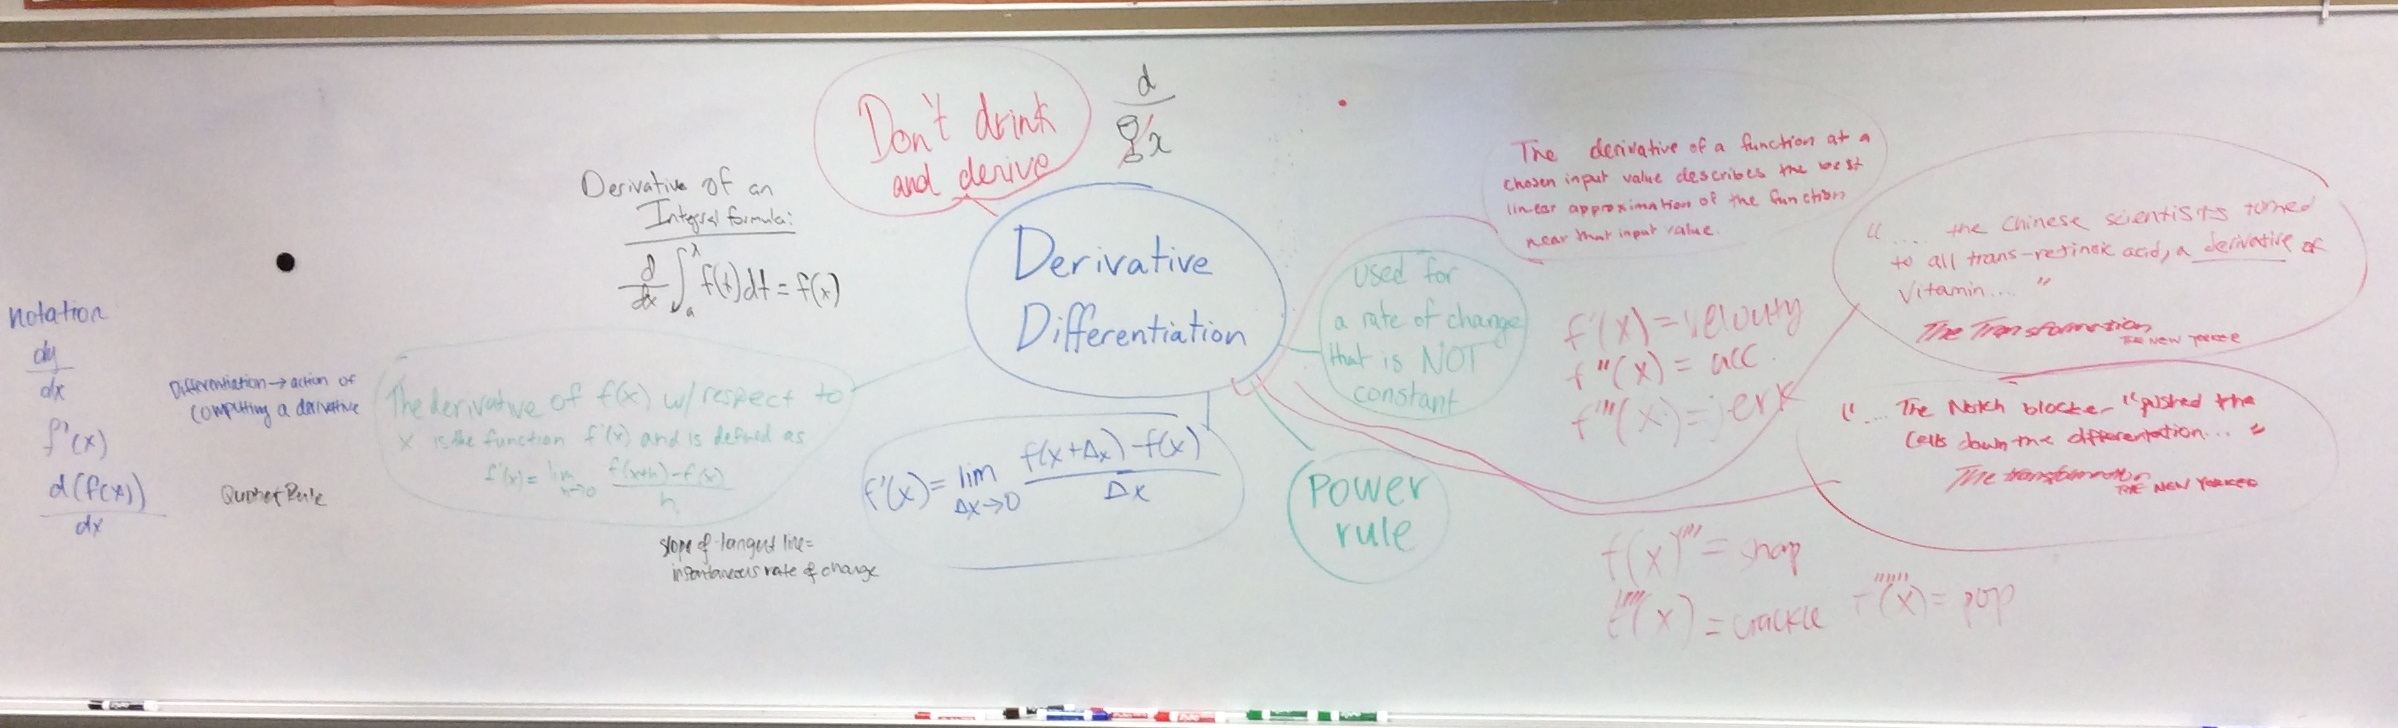 Don't drink
and derive
d
x
Derivative of an
Integral formula:
d/dx ∫ₐˣ f(t)dt = f(x)
Derivative
Differentiation
notation
dy
dx
f'(x)
d(f(x))
dx
Differentiation → action of
computing a derivative
Quotient Rule
The derivative of f(x) w/ respect to
x is the function f'(x) and is defined as
f'(x) = lim h→0 f(x+h) - f(x) / h
slope of tangent line =
instantaneous rate of change
f'(x) = lim Δx→0 f(x+Δx) - f(x) / Δx
used for
a rate of change
that is NOT
constant
Power
rule
The derivative of a function at a
chosen input value describes the best
linear approximation of the function
near that input value.
f'(x) = velocity
f''(x) = acc.
f'''(x) = jerk
f(x)'''' = snap
f'''''(x) = crackle
f''''''(x) = pop
".... the Chinese scientists turned
to all trans-retinoic acid, a derivative of
Vitamin.... "
The Transformation
THE NEW YORKER
"... The Notch blocker "pushed the
cells down the differentation... "
The transformation
THE NEW YORKER